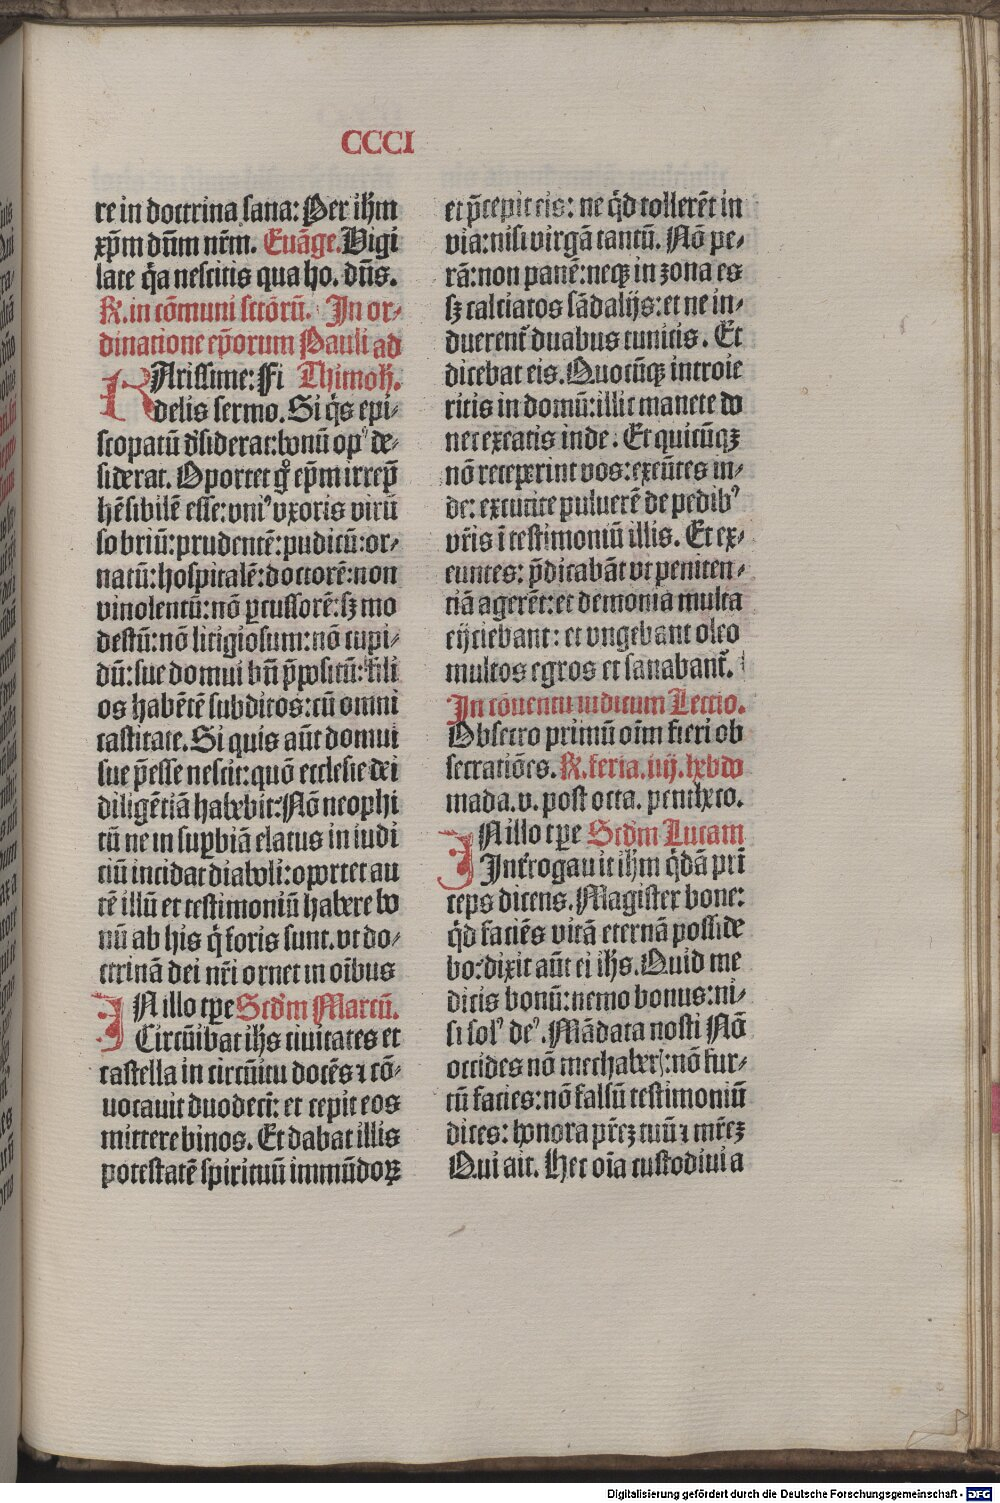 CCCI
re in doctrina sana: Per ihm̄
xp̄m dn̄m nr̄m. Euāge. Vigi
late q̄a nescitis qua ho. dn̄s.
R̷. in cōmuni sctōrū. In or-
dinatione ep̄orum Pauli ad
KArissime: Fi Thimoh.
delis sermo. Si q̄s epi-
scopatū d̄siderat: bonū opꝰ de-
siderat. Oportet gͦ ep̄m irrep̄
hēsibilē esse: vniꝰ vxoris virū
sobriū: prudentē: pudicū: or-
natū: hospitalē: doctorē: non
vinolentū: nō p̱cussorē: sꝫ mo
destū: nō litigiosum: nō cupi-
dū: sue domui bn̄ p̄positū: fili
os habētē subditos: cū omni
castitate. Si quis aūt domui
sue p̄esse nescit: quō ecclesie dei
diligētiā habebit: Nō neophi
tū ne in sup̱biā elatus in iudi
ciū incidat diaboli: oportet au
tē illū et testimoniū habere bo
nū ab his q̄ foris sunt. vt do-
ctrinā dei nr̄i ornet in oībus
IN illo tp̱e Scd̄m Marcū.
Circūibat ihs ciuitates et
castella in circūitu docēs ⁊ cō-
uocauit duodecī: et cepit eos
mittere binos. Et dabat illis
potestatē spirituū immūdoꝝ
et p̄cepit eis: ne q̄d tollerēt in
via: nisi virgā tantū. Nō pe-
rā: non panē: neqꝫ in zona es
sꝫ calciatos sādalijs: et ne in-
duerent̄ duabus tunicis. Et
dicebat eis. Quocūqꝫ introie
ritis in domū: illic manete do
nec exeatis inde. Et quicūqꝫ
nō receperint vos: exeūtes in-
de: excutite puluerē de pedibꝰ
vr̄is ī testimoniū illis. Et ex-
euntes: p̄dicabāt vt peniten-
tiā agerēt: et demonia multa
eijciebant: et vngebant oleo
multos egros et sanabant̄.
In cōuentu iudicum Lectio.
Obsecro primū oīm fieri ob
secratiōes. R̷. feria. iiij. hebdo
mada. v. post octa. penthco.
IN illo tp̱e Scd̄m Lucam
Int̄rogauit ihm̄ q̄dā prī
ceps dicens. Magister bone:
q̄d faciēs vitā eternā posside
bo: dixit aūt ei ihs. Quid me
dicis bonū: nemo bonus: ni-
si solꝰ deꝰ. Mādata nosti Nō
occides nō mechaberꝭ: nō fur-
tū facies: nō falsū testimoniū
dices: honora pr̄eꝫ tuū ⁊ mr̄eꝫ
Qui ait. Hec oīa custodiui a
Digitalisierung gefördert durch die Deutsche Forschungsgemeinschaft - DFG